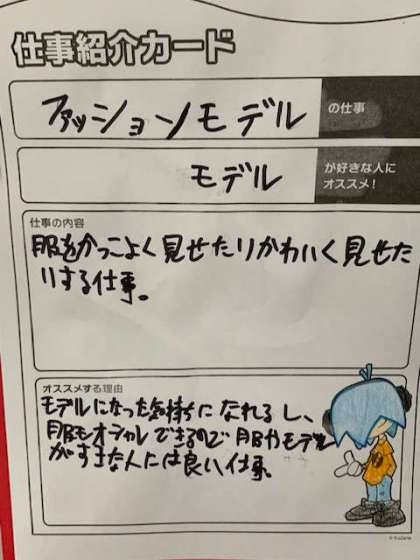 仕事紹介カード
ファッションモデル の仕事
モデル が好きな人に
オススメ!
仕事の内容
服をかっこよく見せたりかわいく見せた
りする仕事。
オススメする理由
モデルになった気持になれるし、
服もオシャレできるので服やモデル
がすきな人には良い仕事。